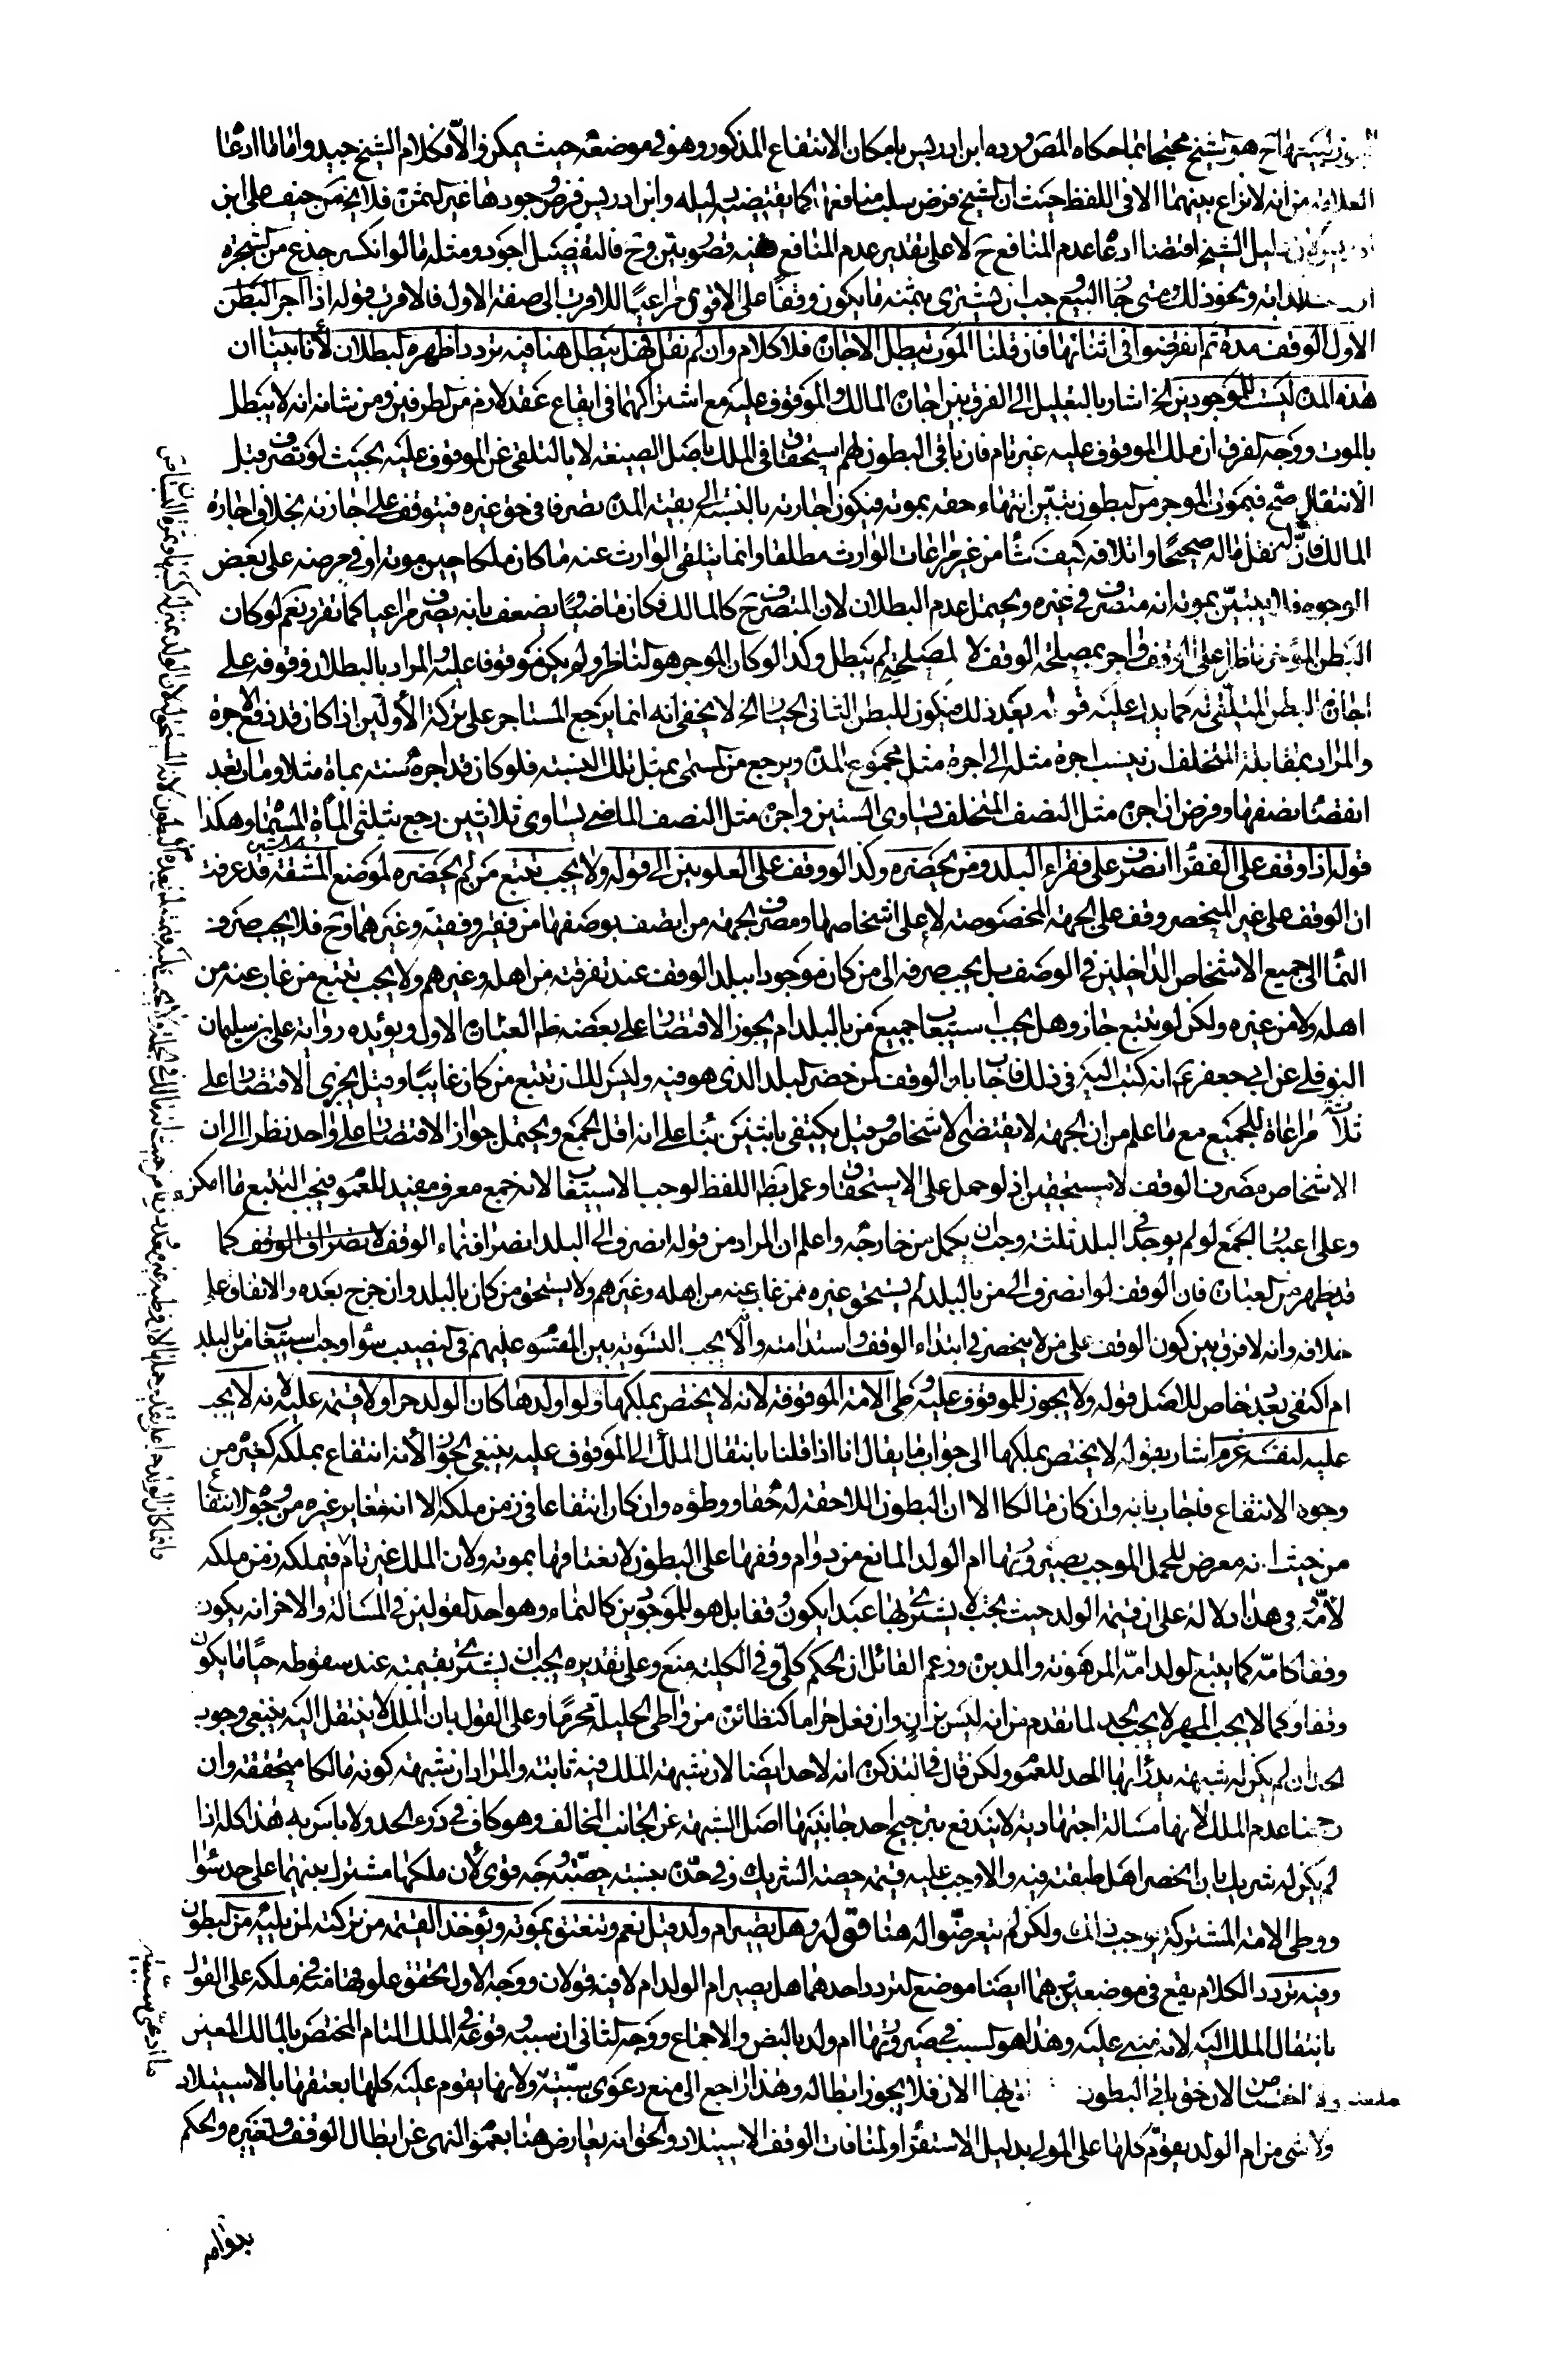 هو الشيخ محتجا بما حكاه المص ورده ابن ادريس بامكان الانتفاع المذكور وهو في موضعه حيث يمكن والا فكلام الشيخ جيد واما ما ادعا
العلامة من انه لا نزاع بينهما الا في اللفظ حيث ان الشيخ فرض سلب منافعها كما يقتضيه دليله وابن ادريس فرض وجودها غير الثمن فلا يخ من حيف على ابن
دليل الشيخ اقتضا ادعا عدم المنافع ح لا على تقدير عدم المنافع ففيه قصور بين وح فالتفصيل اجود ومثله ما لو انكسر جذع من الشجرة
ونحو ذلك ومتى جاز البيع وجب ان يشترى بثمنه ما يكون وقفا على الاقوى مراعيا للاقرب الى صفة الاول فالاقرب قوله اذا آجر البطن
الاول الوقف مدة ثم انقرضوا في اثنائها فان قلنا الموت يبطل الاجارة فلا كلام وان لم نقل فهل يبطل هنا فيه تردد اظهره البطلان لأنا بينا ان
هذه المدة ليست للموجودين الخ اشار بالتعليل الى الفرق بين اجارة المالك والموقوف عليه مع اشتراكهما في ايقاع عقد لازم من الطرفين ومن شانه انه لا يبطل
بالموت ووجه الفرق ان ملك الموقوف عليه غير تام فان باقي البطون لهم استحقاق في الملك باصل الصيغة لا بالتلقي عن الموقوف عليه بحيث لو تصرف قبل
الانتقال صح فبموت الموجر من البطون تبين انتهاء حقه بموته فيكون اجارته بالنسبة الى بقية المدة تصرفا في حق غيره فيتوقف على اجازته بخلاف اجارة
المالك فان له نقل ماله صحيحا واتلافه كيف شا من غير مراعات الوارث مطلقا وانما يتلقى الوارث عنه ما كان ملكا حين موته او في مرضه على بعض
الوجوه فلا يتبين بموته انه متصرف في غيره ويحتمل عدم البطلان لان المتصرف ح كالمالك فكان ماضيا ويضعف بانه تصرف مراعيا كما تقرر نعم لو كان
البطن المؤجر ناظرا على الوقف وآجر لمصلحة الوقف لا لمصلحته لم يبطل وكذا لو كان الموجر هو الناظر ولم يكن موقوفا عليه والمراد بالبطلان وقوفه على
اجازة البطن المتلقي له كما يدل عليه قوله بعد ذلك فيكون للبطن الثاني الخيار الخ لا يخفى انه انما يرجع المستاجر على تركة الأولين اذا كان قد دفع الاجرة
والمراد بمقابلة المتخلف ان ينسب اجرة مثله الى اجرة مثل مجموع المدة ويرجع من المسمى بمثل تلك النسبة فلو كان قد آجره سنة بمائة مثلا ومات بعد
انقضا نصفها وفرض ان اجرة مثل النصف المتخلف يساوى الستين واجرة مثل النصف الماضي يساوى ثلاثين رجع بثلثي المأة المسماة وهكذا
قوله اذا وقف على الفقرا انصرف على فقراء البلد ومن يحضره وكذا لو وقف على العلويين الى قوله ولا يجب تتبع من لم يحضره لموضع المشقة قد عرفت
ان الوقف على غير المنحصر وقف على الجهة المخصوصة لا على اشخاصها ومصرف الجهة من اتصف بوصفها من فقير وفقيه وغيرهما وح فلا يجب صرف
النما الى جميع الاشخاص الداخلين في الوصف بل يجب صرفه الى من كان موجودا ببلد الوقف عند تفرقته من اهله وغيرهم ولا يجب تتبع من غاب عنه من
اهله ولا من غيره ولكن لو تتبع جاز وهل يجب استيعاب جميع من بالبلد ام يجوز الاقتصار على بعضه ظ العبارة الاول ويؤيده رواية علي بن سليمان
النوفلي عن ابي جعفر ع انه كتب اليه في ذلك فاجاب بان الوقف لمن حضر البلد الذي هو فيه وليس لك ان تتبع من كان غايبا وقيل يجزي الاقتصار على
ثلاثة مراعاة للجميع مع ما علم من ان الجهة لا يقتضي الاشخاص وقيل يكتفي باثنين بنا على انه اقل الجمع ويحتمل جواز الاقتصار على واحد نظرا الى ان
الاشخاص مصرف الوقف لا مستحقين اذ لو حمل على الاستحقاق وعمل بظ اللفظ لوجب الاستيعاب لانه جمع معرف مفيد للعموم فيجب التتبع ما امكن
وعلى اعتبار الجمع لو لم يوجد في البلد ثلثة وجب ان يكمل من خارجه واعلم ان المراد من قوله انصرف الى البلد انصراف نماء الوقف لا نصراف الوقف كما
قد يظهر من العبارة فان الوقف لو انصرف الى من بالبلد لم يستحق غيره ممن غاب عنه من اهله وغيرهم ولا يستحق من كان بالبلد وان خرج بعده والاتفاق على
خلافه وانه لا فرق بين كون الوقف على من لا ينحصر في ابتداء الوقف واستدامته والا يجب التسوية بين المقسوم عليهم في النصيب سواء اوجب استيعاب من بالبلد
ام اكتفى بعدد خاص للاصل قوله ولا يجوز للموقوف عليه وطي الامة الموقوفة لانه لا يختص بملكها ولو اولدها كان الولد حرا ولا قيمة عليه لانه لا يجب
عليه لنفسه غرم اشار بقوله لا يختص بملكها الى جواب ما يقال انا اذا قلنا بانتقال الملك الى الموقوف عليه ينبغي الجواز لأنه انتفاع بملكه كغيره من
وجوه الانتفاع فاجاب بانه وان كان مالكا الا ان البطون اللاحقة له حقا ووطؤه وان كان انتفاعا في زمن ملكه الا انه مغاير غيره من وجوه الانتفاع
من حيث انه معرض للحمل الموجب لصيرورتها ام الولد المانع من دوام وقفها على البطون لانعتاقها بموته ولان الملك غير تام فيملكه زمن ملكه
في هذا دلالة على ان قيمة الولد حيث يجب لا يشترى بها عبد ليكون وقفا بل هو للموجودين كالنماء وهو احد القولين في المسألة والآخر انه يكون
وقفا كامه كما يتبع لولد امه المرهونة والمدبرة وزعم القائل ان الحكم كلي وفي الكلية منع وعلى تقديره يجب ان يشترى بقيمته عند سقوطه حيا ما يكون
وقفا وكما لا يجب المهر لا يجب الحد لما تقدم من انه ليس بزان وان فعل حراما كنظائره من واطى الحليلة محرما وعلى القول بان الملك لا ينتقل اليه ينبغي وجوب
الحد ان لم يكن له شبهة يدرأ بها الحد للعموم ولكن قال في التذكرة انه لا حد ايضا لان شبهة الملك فيه ثابتة والمراد ان شبهة كونه مالكا متحققة وان
رجحنا عدم الملك لأنها مسألة اجتهادية لا يندفع بترجيح احد جانبيها اصل الشبهة عن الجانب المخالف وهو كاف في درء الحد ولا باس به هذا كله اذا
لم يكن له شريك بان انحصر اهل طبقته فيه والا وجب عليه قيمة حصة الشريك وفي حده بنسبة حصته وجه قوي لأن ملكها مشترك بينهما على حد سواء
ووطى الامة المشتركة يوجب ذلك ولكن لم يتعرضوا له هنا قوله وهل يصير ام ولد قيل نعم وتنعتق بموته ويؤخذ القيمة من تركته لمن يليه من البطون
وفيه تردد الكلام يقع في موضعين هما ايضا موضع التردد احدهما هل يصير ام الولد ام لا فيه قولان ووجه الاول تحقق علوقها منه في ملكه على القول
بانتقال الملك اليه لانه مبني عليه وهذا هو السبب في صيرورتها ام ولد بالنص والاجماع ووجه الثاني ان سببه وقوعه في الملك التام المختص بالمالك المعين
الآن لحق باقي البطون بها الان فلا يجوز ابطاله وهذا راجع الى منع دعوى سببيته ولانها يقوم عليه كلها بعتقها بالاستيلاد
ولا شي من ام الولد يقوم كلها على المولى بدليل الاستقرا ولمنافات الوقف الاستيلاد والحق انه يعارض هنا بعموم النهي عن ابطال الوقف وتغييره والحكم
بدوام